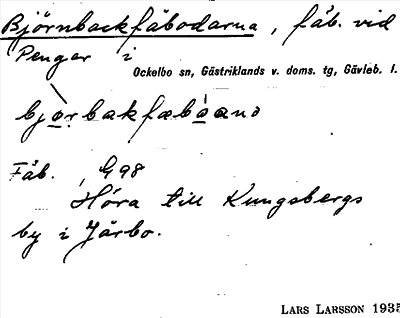 Björnbackfäbodarna, fäb. vid
Pengar i
Ockelbo sn, Gästriklands v. doms. tg, Gävleb. l.
Fäb., G98
Höra till Kungsbergs
by i Järbo.
LARS LARSSON 1935